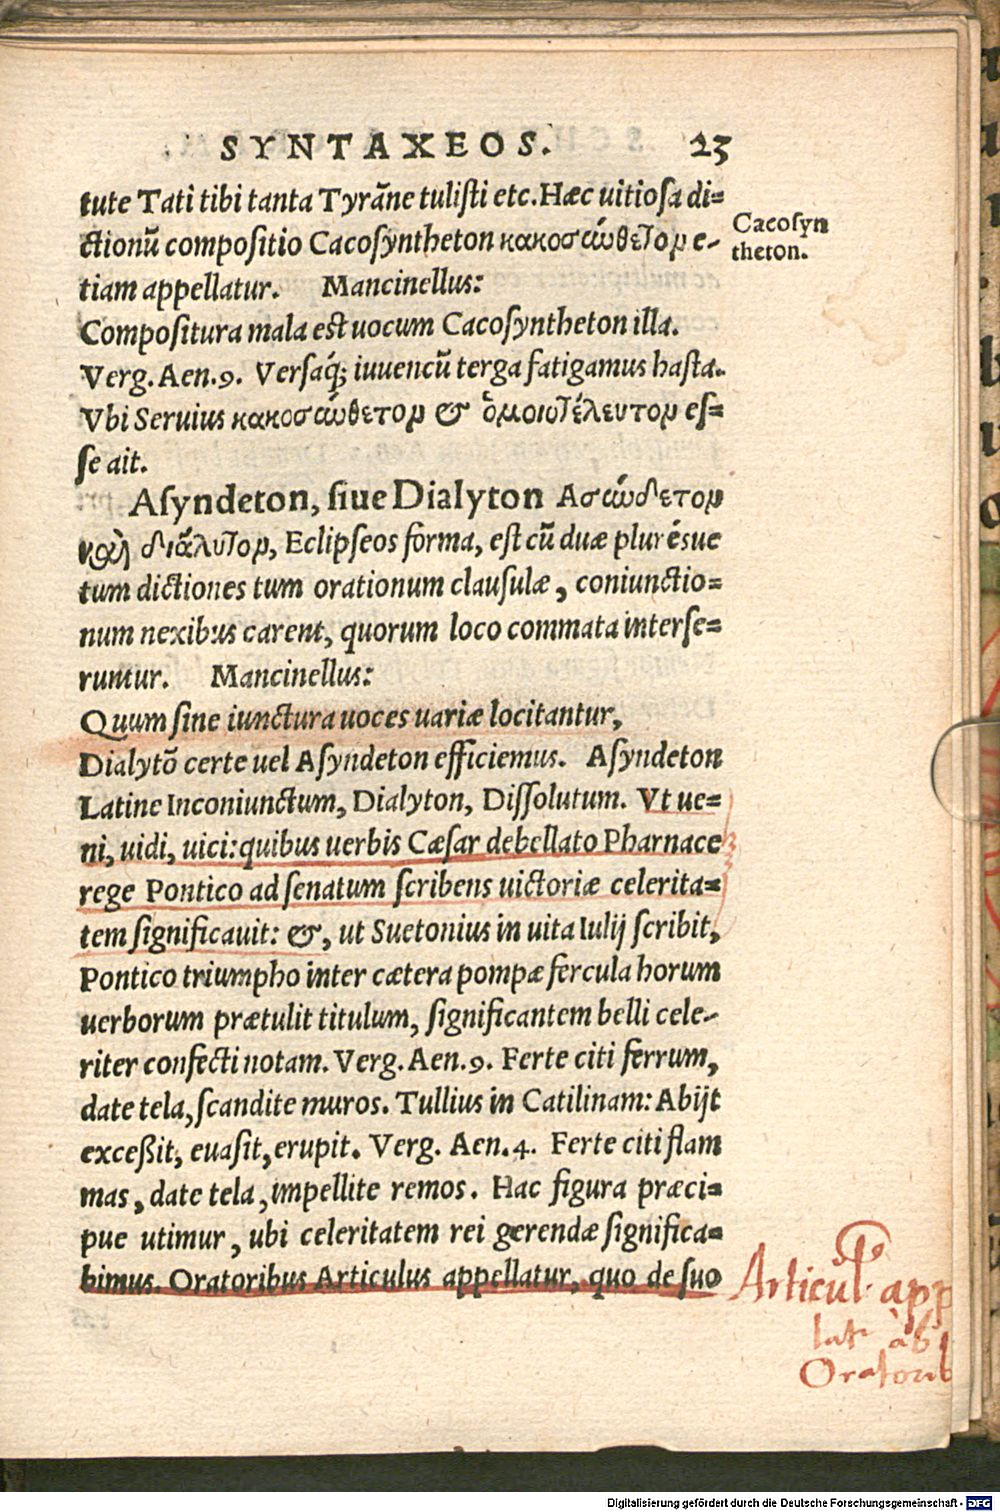 SYNTAXEOS. 23
tute Tati tibi tanta Tyrāne tulisti etc. Hæc uitiosa di=
ctionū compositio Cacosyntheton κακοσύνθετον e-
tiam appellatur. Mancinellus:
Cacosyn
theton.
Compositura mala est uocum Cacosyntheton illa.
Verg. Aen. 9. Versaq́; iuuencū terga fatigamus hasta.
Vbi Seruius κακοσύνθετον & ὁμοιοτέλευτον es=
se ait.
Asyndeton, siue Dialyton Ασύνδετον
καὶ διάλυτον, Eclipseos forma, est cū duæ plurésue
tum dictiones tum orationum clausulæ, coniunctio=
num nexibus carent, quorum loco commata interse=
runtur. Mancinellus:
Quum sine iunctura uoces uariæ locitantur,
Dialytō certe uel Asyndeton efficiemus. Asyndeton
Latine Inconiunctum, Dialyton, Dissolutum. Vt ue=
ni, uidi, uici: quibus uerbis Cæsar debellato Pharnace
rege Pontico ad senatum scribens uictoriæ celerita=
tem significauit: &, ut Suetonius in uita Iulij scribit,
Pontico triumpho inter cætera pompæ fercula horum
uerborum prætulit titulum, significantem belli cele-
riter confecti notam. Verg. Aen. 9. Ferte citi ferrum,
date tela, scandite muros. Tullius in Catilinam: Abijt
exceßit, euasit, erupit. Verg. Aen. 4. Ferte citi flam
mas, date tela, impellite remos. Hac figura præci=
pue utimur, ubi celeritatem rei gerendæ significa=
bimus. Oratoribus Articulus appellatur, quo de suo
Articul. app
lat. ab
Oratorib
Digitalisierung gefördert durch die Deutsche Forschungsgemeinschaft - DFG